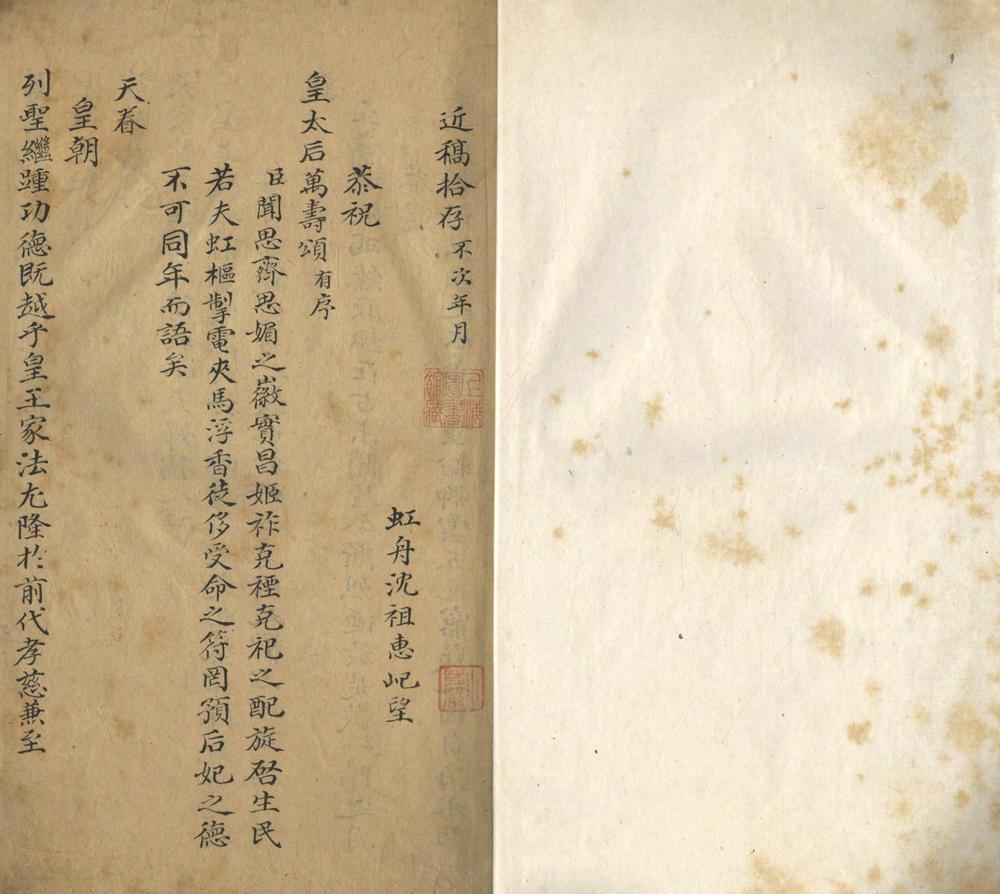 近稿拾存 不次年月
虹舟沈祖惠屺望
恭祝
皇太后萬壽頌 有序
臣聞思齊思媚之徽實昌姬祚克禋克祀之配旋啓生民
若夫虹樞掣電夾馬浮香徒侈受命之符罔預后妃之德
不可同年而語矣
天眷
皇朝
列聖繼踵功德既越乎皇王家法尤隆於前代孝慈兼至